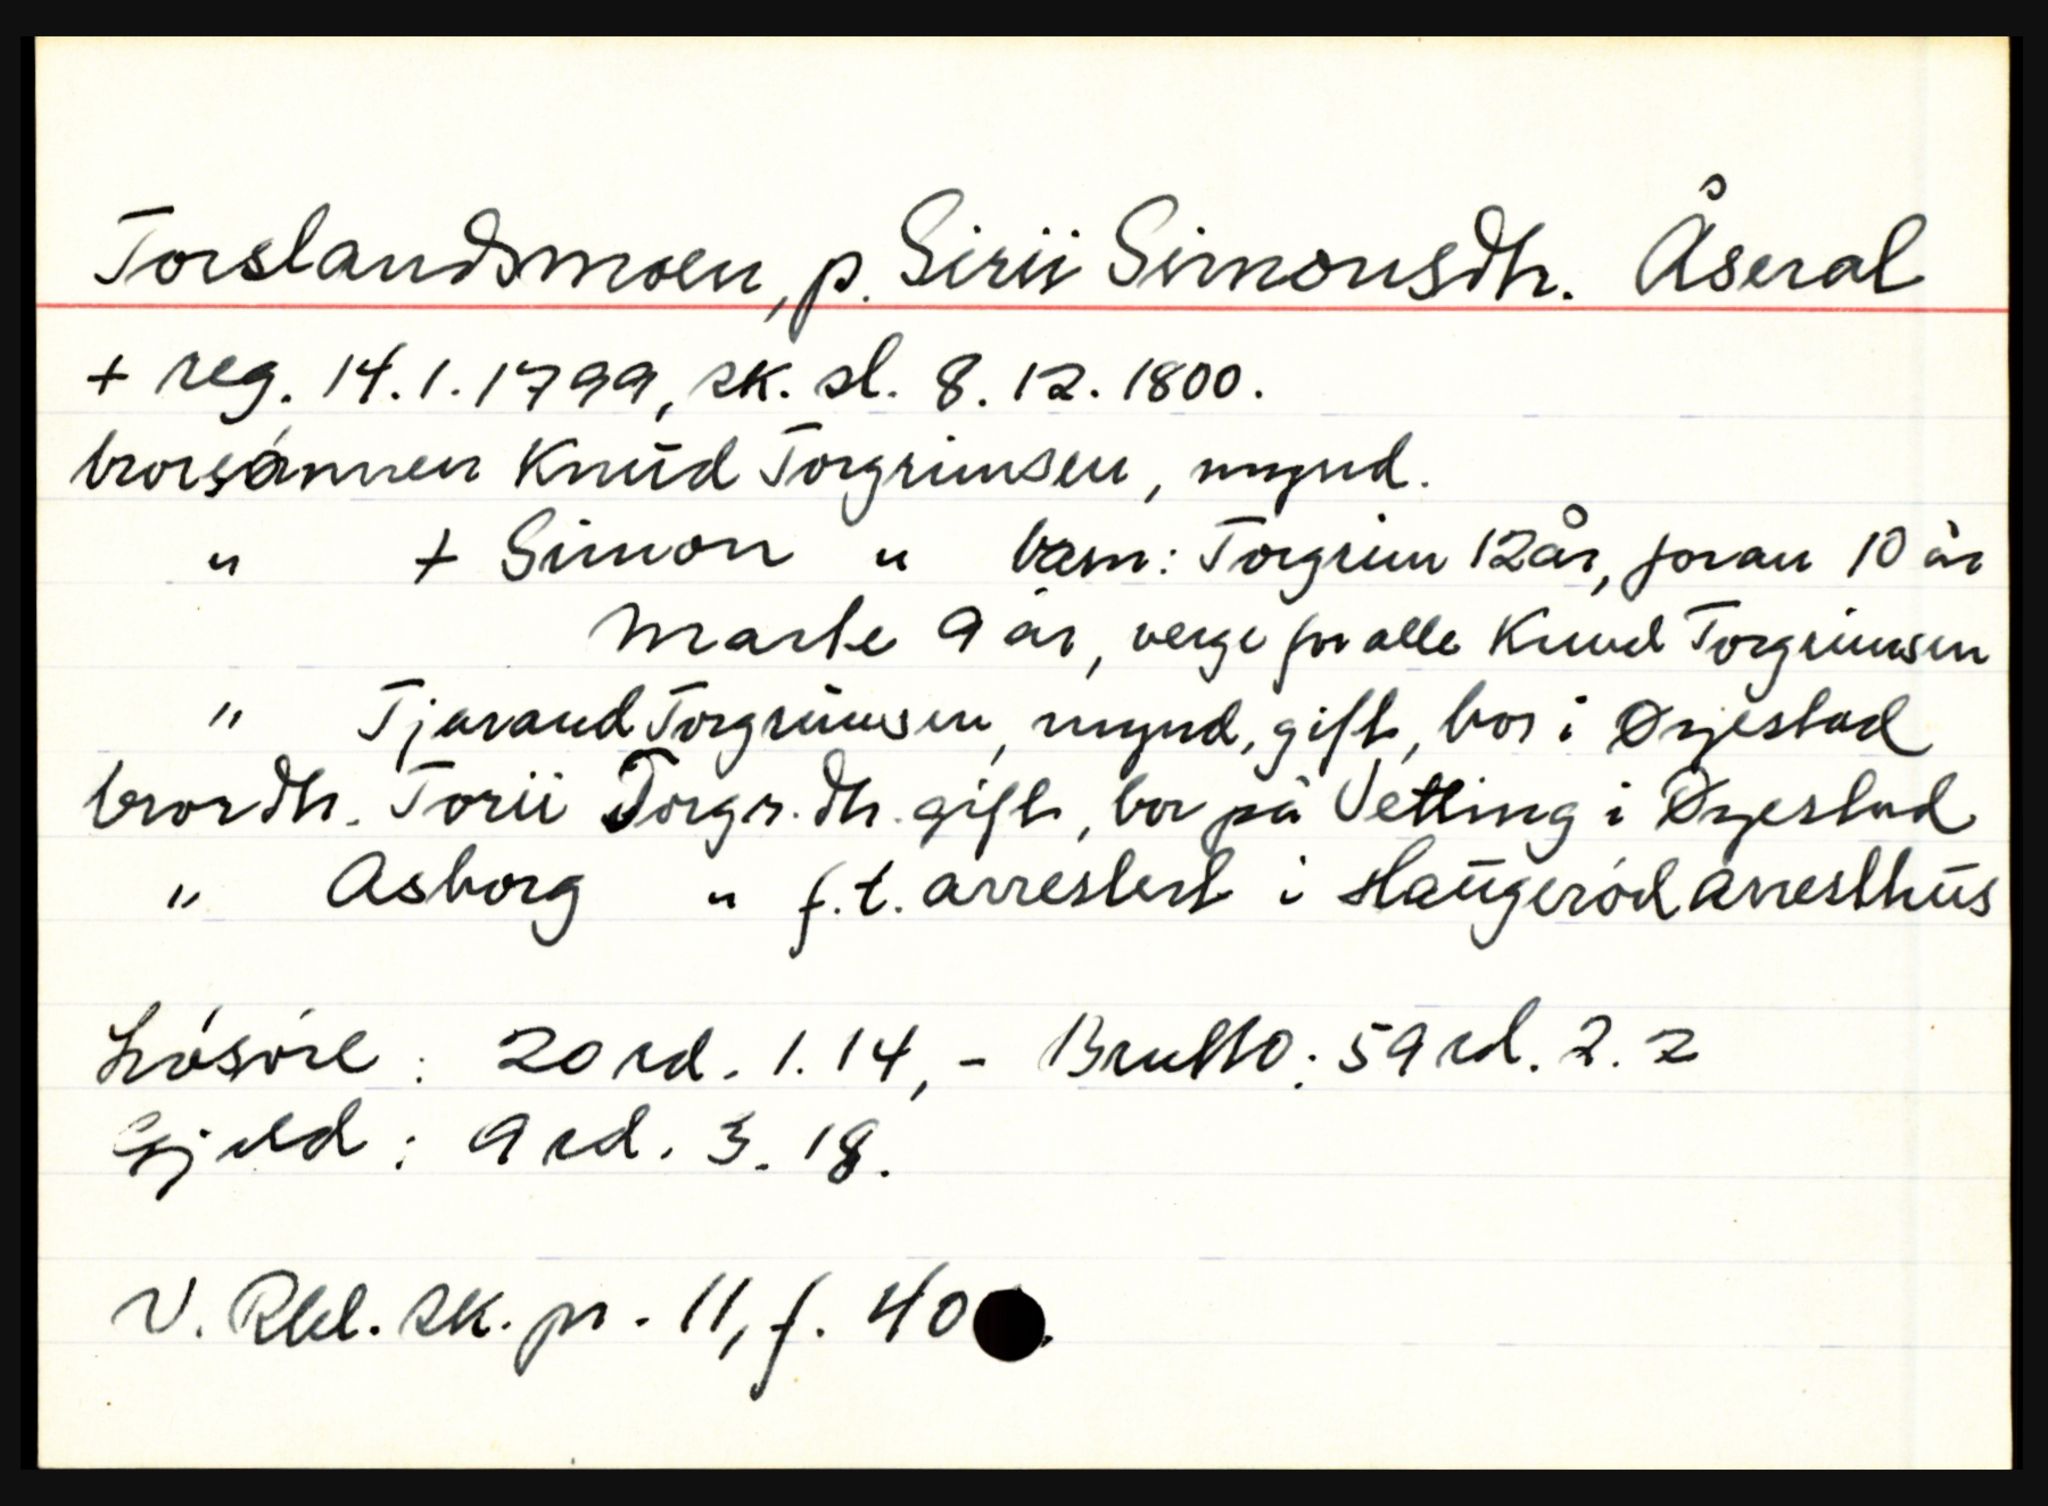 Torslandsmoen, p. Sirii Simonsdtr. Åseral
+ reg. 14.1.1799, sk. sl. 8.12.1800.
brorsónnen Knud Torgrimsen, mynd.
" + Simon " barn: Torgrim 12 år, Joran 10 år
Marte 9 år, verge for alle Knud Torgrimsen
" Tjarand Torgrimsen, mynd, gift, bor i Øyestad
brordtr. Torii Torgr.dtr. gift, bor på Vetting i Øyestad
" Asborg " f.t. arrestert i Haugeród arresthus
Lósóre: 20 rd. 1.14, - Brutto: 59 rd. 2.2
Gjeld: 9 rd. 3. 18.
V. Rbl. sk. pr. 11, f. 40